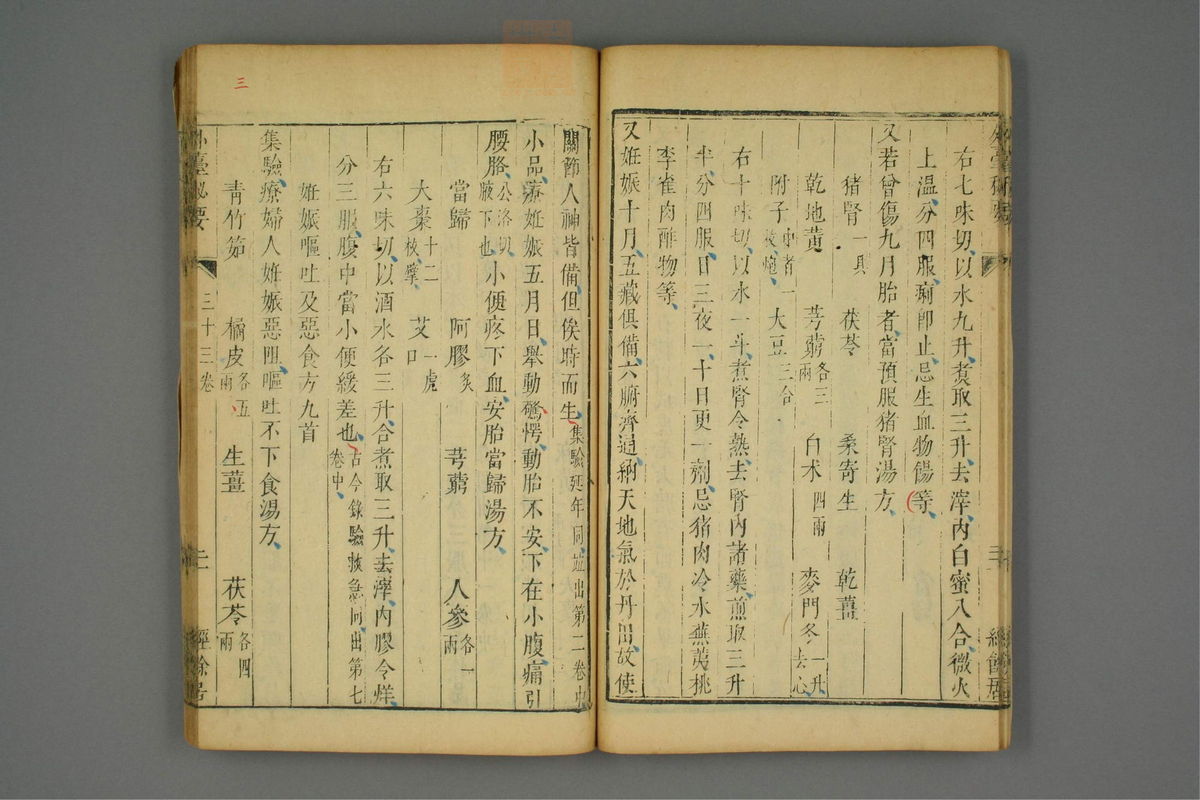 右七味切以水九升煑取三升去滓內白蜜八合微火
上溫分四服痢即止忌生血物餳等
又若曾傷九月胎者當預服猪腎湯方
猪腎一具 茯苓 桑寄生 乾薑
乾地黃 芎藭各三兩 白朮四兩 麥門冬一升去心
附子中者一枚炮 大豆三合
右十味切以水一斗煮腎令熟去腎內諸藥煎取三升
半分四服日三夜一十日更一劑忌猪肉冷水蕪荑桃
李雀肉酢物等
又姙娠十月五藏俱備六腑齊通納天地氣於丹田故使
關節人神皆備但俟時而生集驗延年同並出第二卷中
小品療姙娠五月日舉動驚愕動胎不安下在小腹痛引
腰胳公洛切腋下也小便疼下血安胎當歸湯方
當歸 阿膠炙 芎藭 人參各一兩
大棗十二枚擘 艾一虎口
右六味切以酒水各三升合煮取三升去滓內膠令烊
分三服腹中當小便緩差也古今錄驗救急同出第七卷中
姙娠嘔吐及惡食方九首
集驗療婦人姙娠惡阻嘔吐不下食湯方
靑竹筎 橘皮各五兩 生薑 茯苓各四兩
臺秘要 三十三卷 二十 經餘居
三